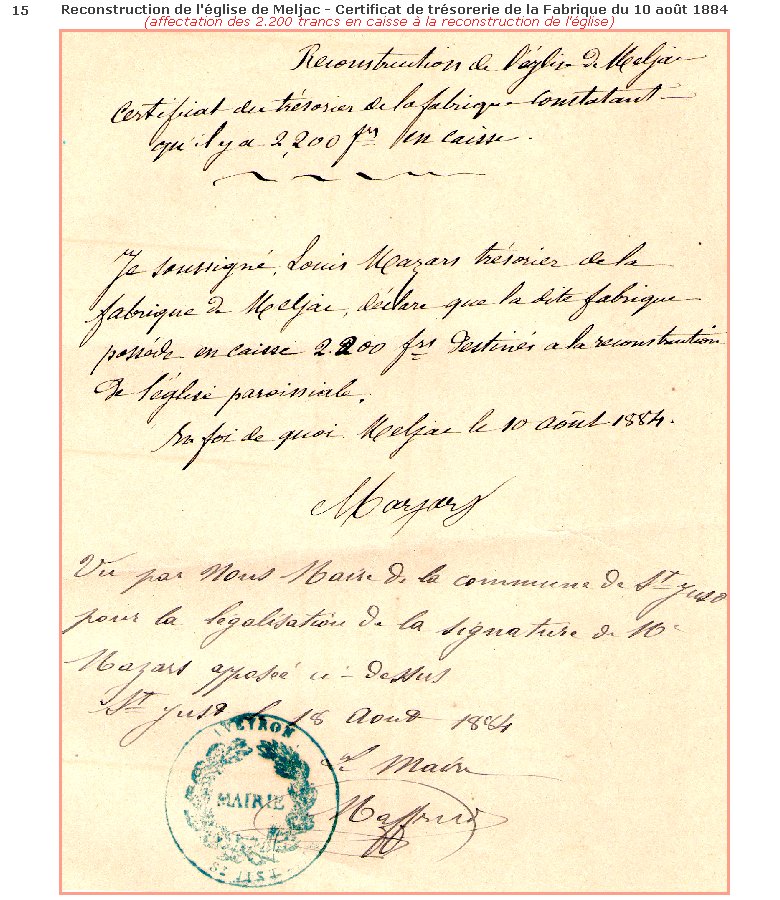 15
Reconstruction de l'église de Meljac - Certificat de trésorerie de la Fabrique du 10 août 1884
(affectation des 2.200 trancs en caisse à la reconstruction de l'église)
Reconstruction de l'église de Meljac
Certificat du trésorier de la fabrique constatant
qu'il y a 2,200 frs en caisse.
Je soussigné, Louis Mazars trésorier de la
fabrique de Meljac, déclare que la dite fabrique
possède en caisse 2.200 frs destinés a la reconstruction
de l'église paroissiale.
En foi de quoi Meljac le 10 août 1884.
Mazars
Vu par Nous Maire de la commune de St Just
pour la legalisation de la signature de Mr
Mazars apposée ci-dessus
St Just le 18 Aout 1884
Le Maire
AVEYRON
MAIRIE